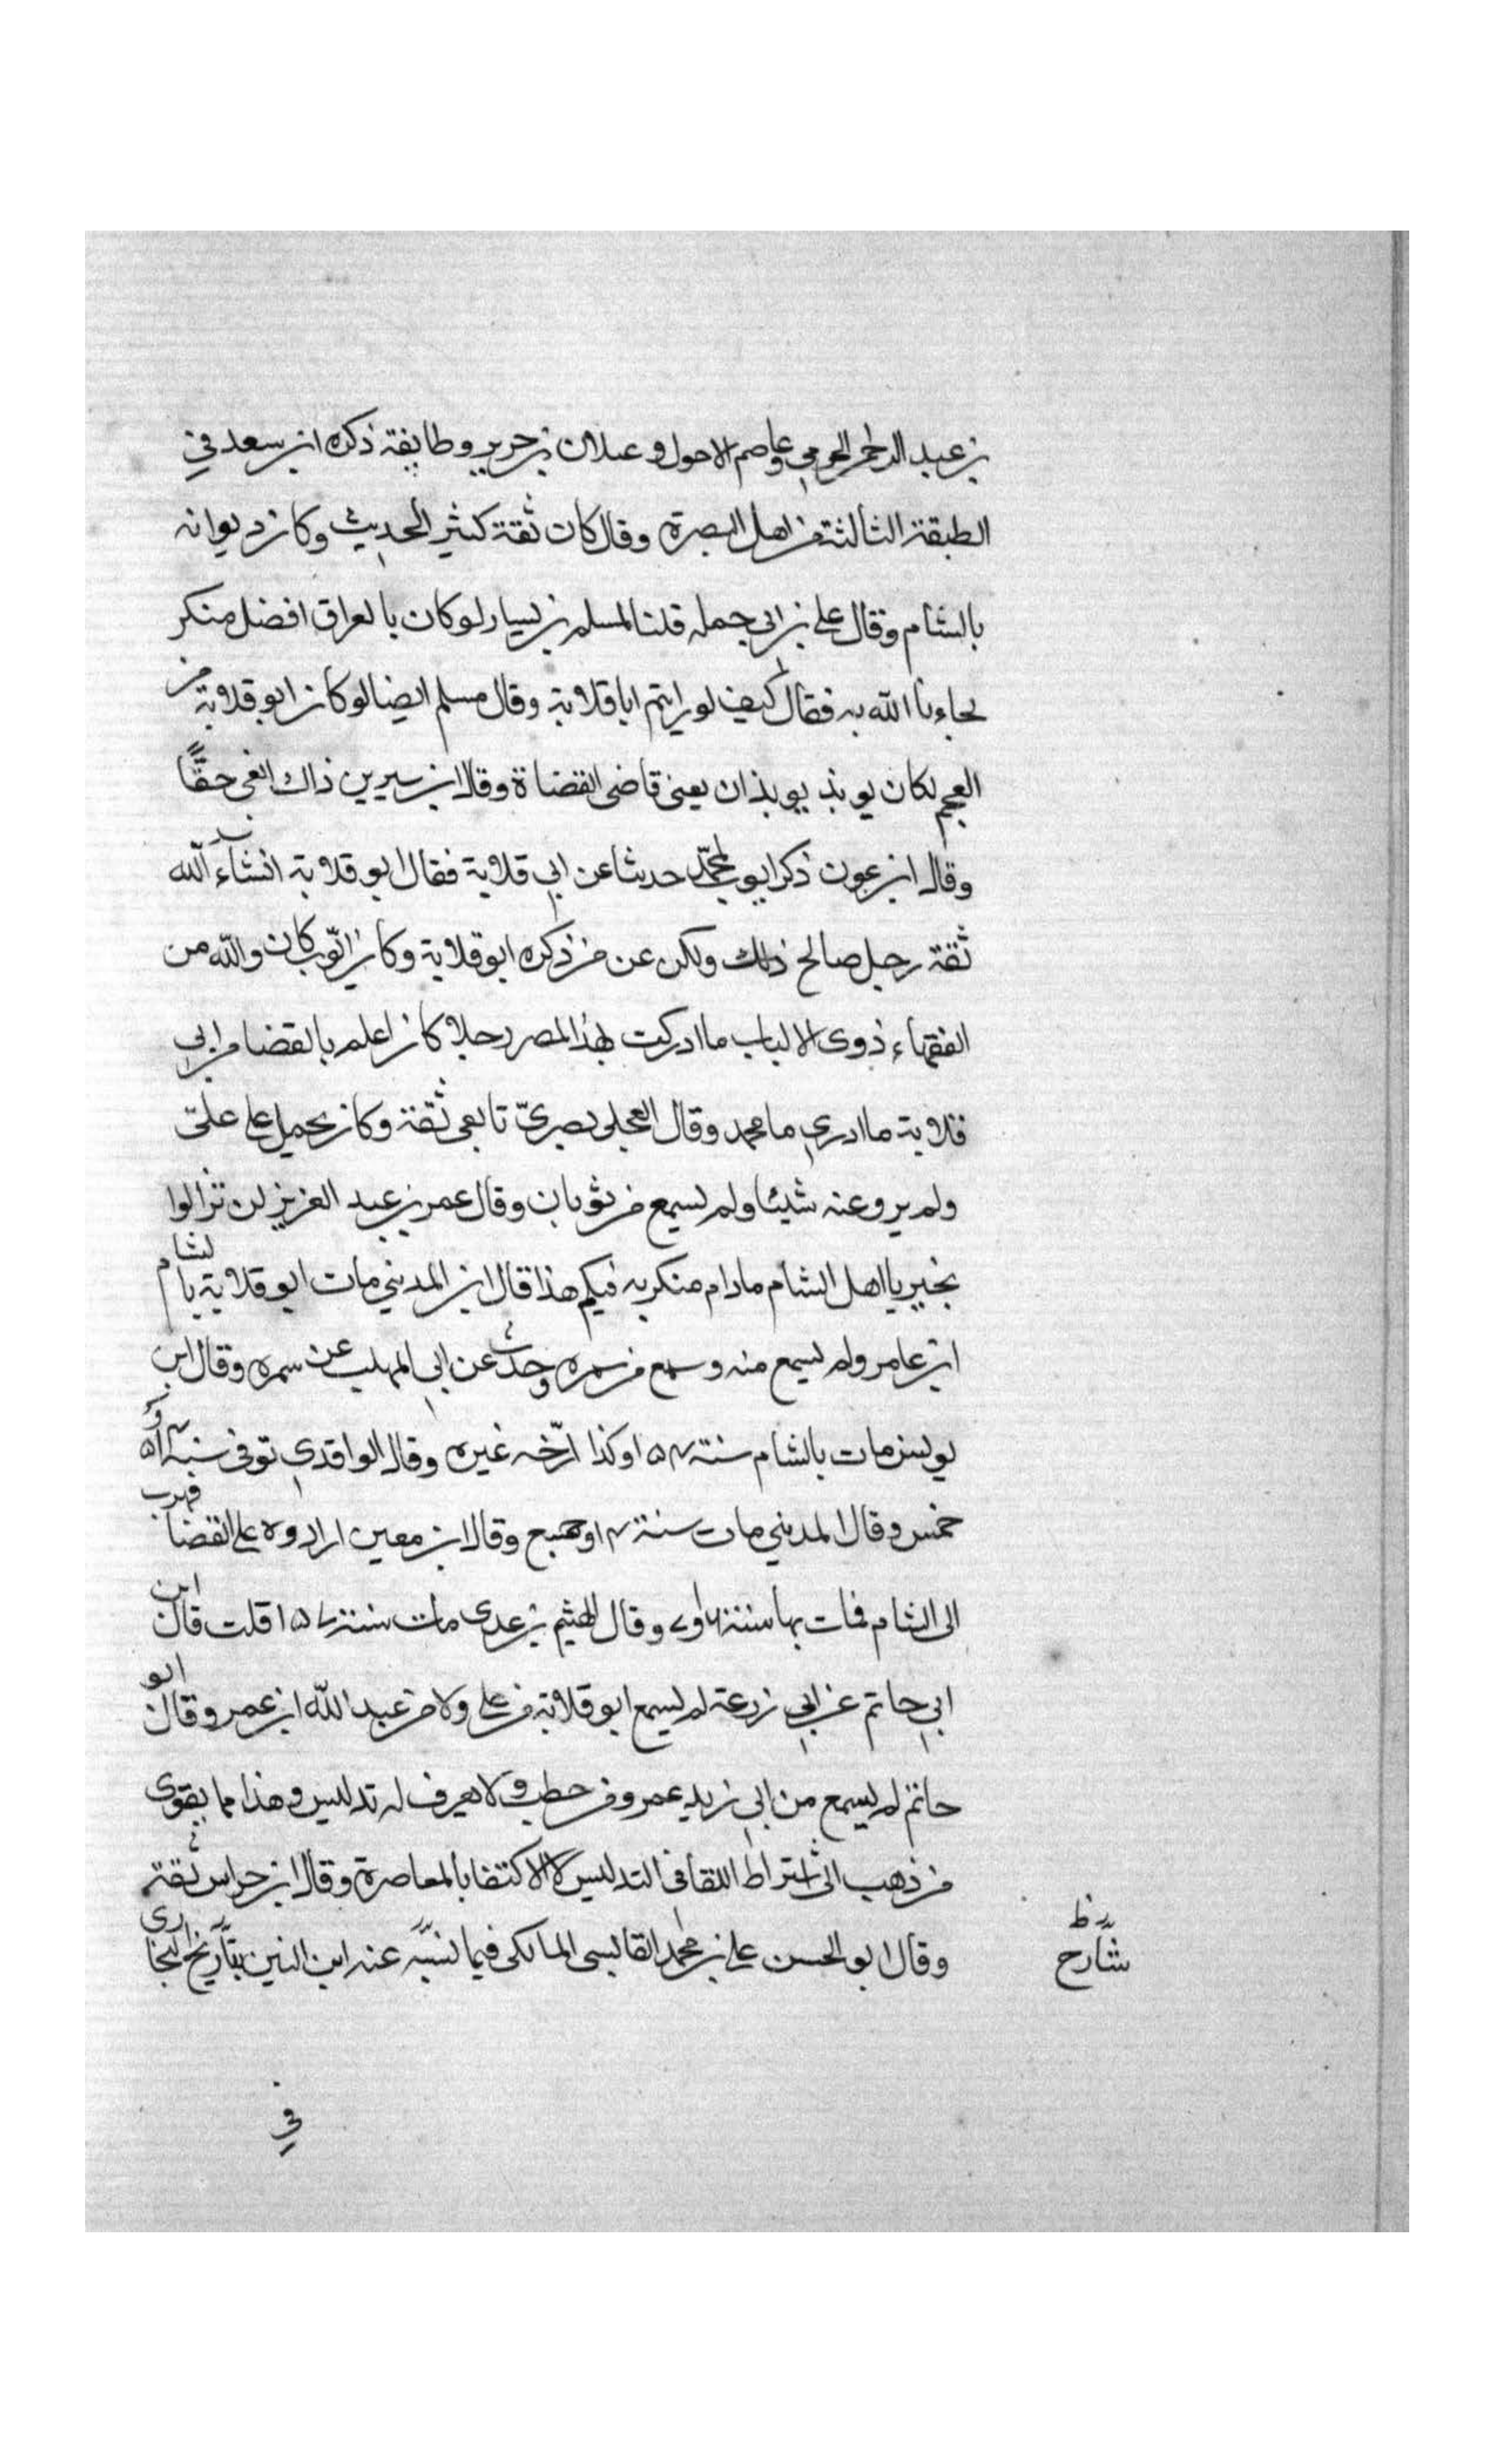 بن عبد الرحمن الجرمي وعاصم الاحول و عيلان بن جرير وطايفة ذكره ابن سعد في
الطبقة الثالثة من اهل البصرة وقال كان ثقة كثير الحديث وكان ديوانه
بالشام وقال علي بن ابي جملة قلنا لمسلم بن يسار لو كان بالعراق افضل منكم
لجاءنا الله به فقال كيف لو رايتم ابا قلابة وقال مسلم ايضا لو كان ابو قلابة من
العجم لكان يوبذ يوبذان يعني قاضي القضاة وقال ابن سيرين ذاك اخي حقًّا
وقال ابن عون ذكر ايوب لمحمّد حديثا عن ابي قلابة فقال ابو قلابة انشآء الله
ثقة رجل صالح ذلك ولكن عن من ذكره ابو قلابة وكان ايّوب كان والله من
الفقهاء ذوي الالباب ما ادركت بهذا المصر رجلا كان اعلم بالقضا من ابي
قلابة ما ادري ما محمد وقال العجلي بصريّ تابعي ثقة وكان يحمل على علي
ولم يرو عنه شيئا ولم يسمع من ثوبان وقال عمر بن عبد العزيز لن تزالوا
بخير يا اهل الشام مادام منكر به فيكم هذا قال ابن المديني مات ابو قلابة بالشام
ابن عامر ولم يسمع منه وسمع من سمره وحدث عن ابي المهلب عن سمره وقال ابن
يونس مات بالشام سنة ١٠٤ وكذا ارّخه غيره وقال الواقدي توفي سنة
خمس وقال المديني مات سنة ٤ او سبع وقال ابن معين ارادوه على القضا فهرب
الى الشام فمات بها سنة ٦ او ٧ وقال الهيثم بن عدي مات سنة ١٠٧ قلت قال ابن
ابي حاتم عن ابي زرعة لم يسمع ابو قلابة من علي ولا من عبد الله ابن عمر وقال ابو
حاتم لم يسمع من ابي زيد عمرو من حطب ولا يعرف له تدليس وهذا مما يقوى
من ذهب الى اشتراط اللقا في التدليس لا الاكتفا بالمعاصرة وقال ابن حراس ثقة
وقال ابو الحسن علي بن محمد القابسي المالكي فيما نسبّه عنه ابن التين بتاريخ البخاري
شارح
في